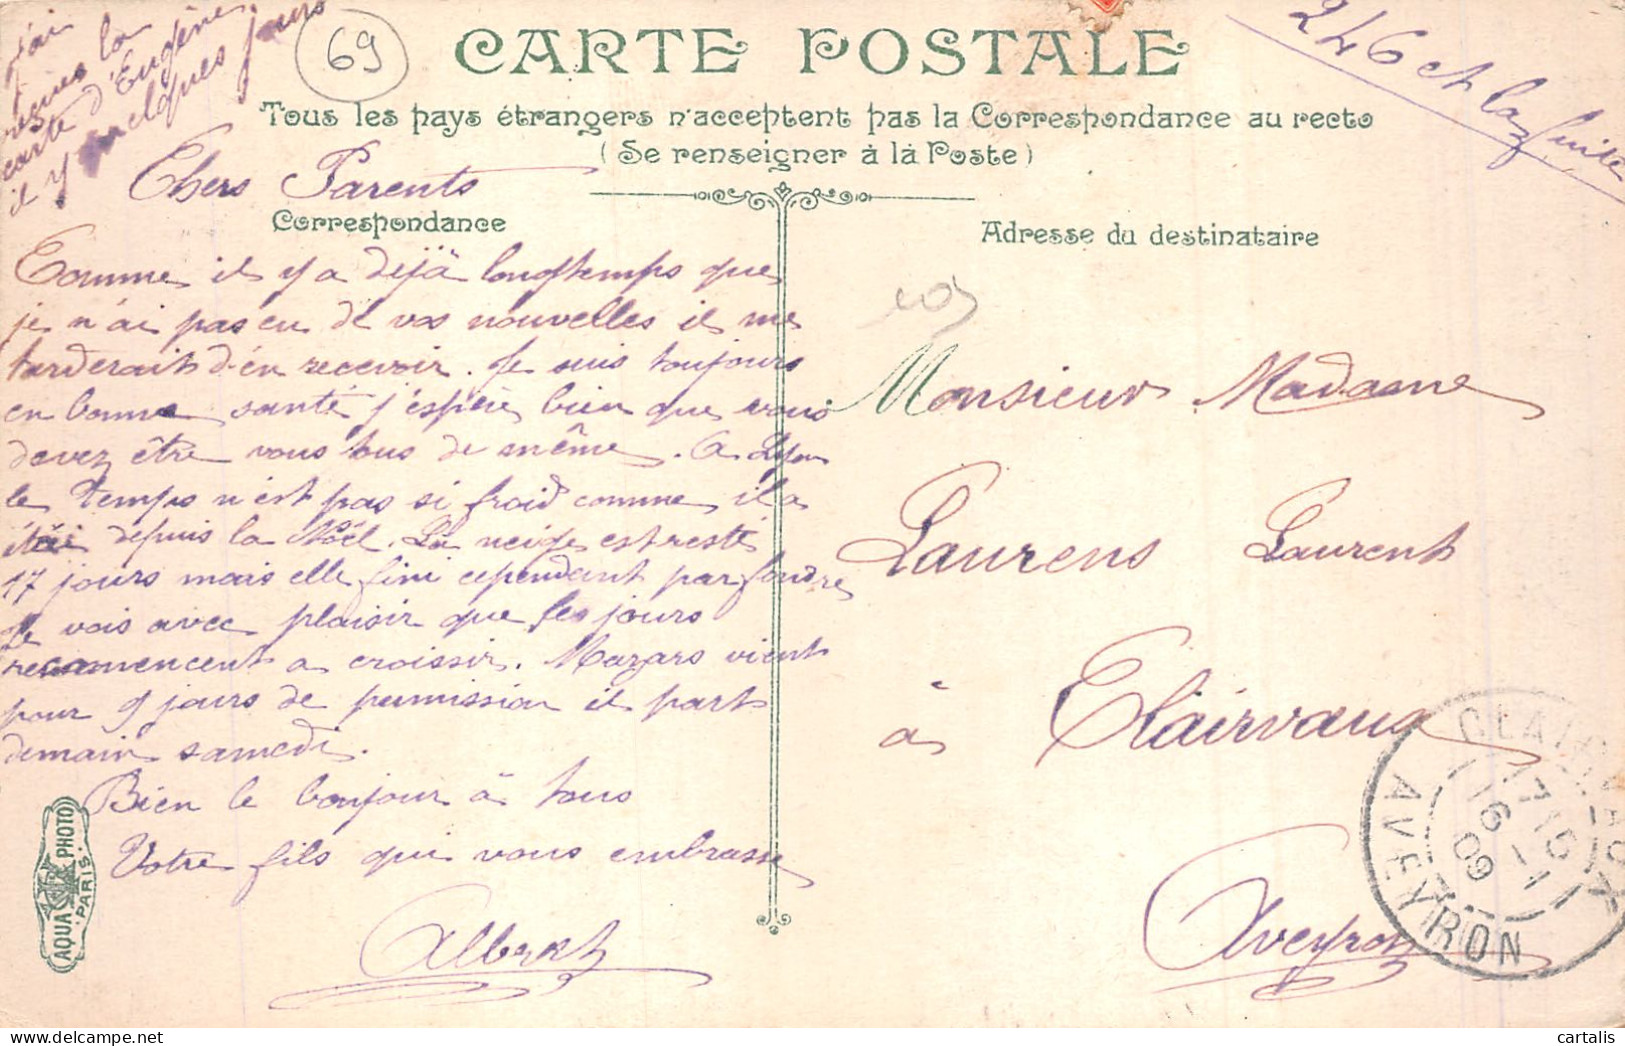 j'ai
reçues la
carte d'Eugène
il y a quelques jours
69
CARTE POSTALE
246 et la fuite
Tous les pays étrangers n'acceptent pas la Correspondance au recto
(Se renseigner à la Poste)
Chers Parents
Correspondance
Adresse du destinataire
Comme il y a déjà longtemps que
je n'ai pas eu de vos nouvelles il me
tarderait d'en recevoir. Je suis toujours
en bonne santé j'espère bien que vous
devez être vous tous de même. A Lyon
le temps n'est pas si froid comme il a
été depuis la Noël. La neige est resté
17 jours mais elle fini cependant par fondre
Je vois avec plaisir que les jours
recommencent a croissir. Mazars vient
pour 9 jours de permission il part
demain samedi.
Bien le bonjour à tous
Votre fils qui vous embrasse
Albert
Monsieur Madame
Laurens Laurent
à Clairvaux
Aveyron
CLAIRVAUX
AVEYRON
17 15
16 -1
09
AQUA PHOTO
PARIS
cartalis